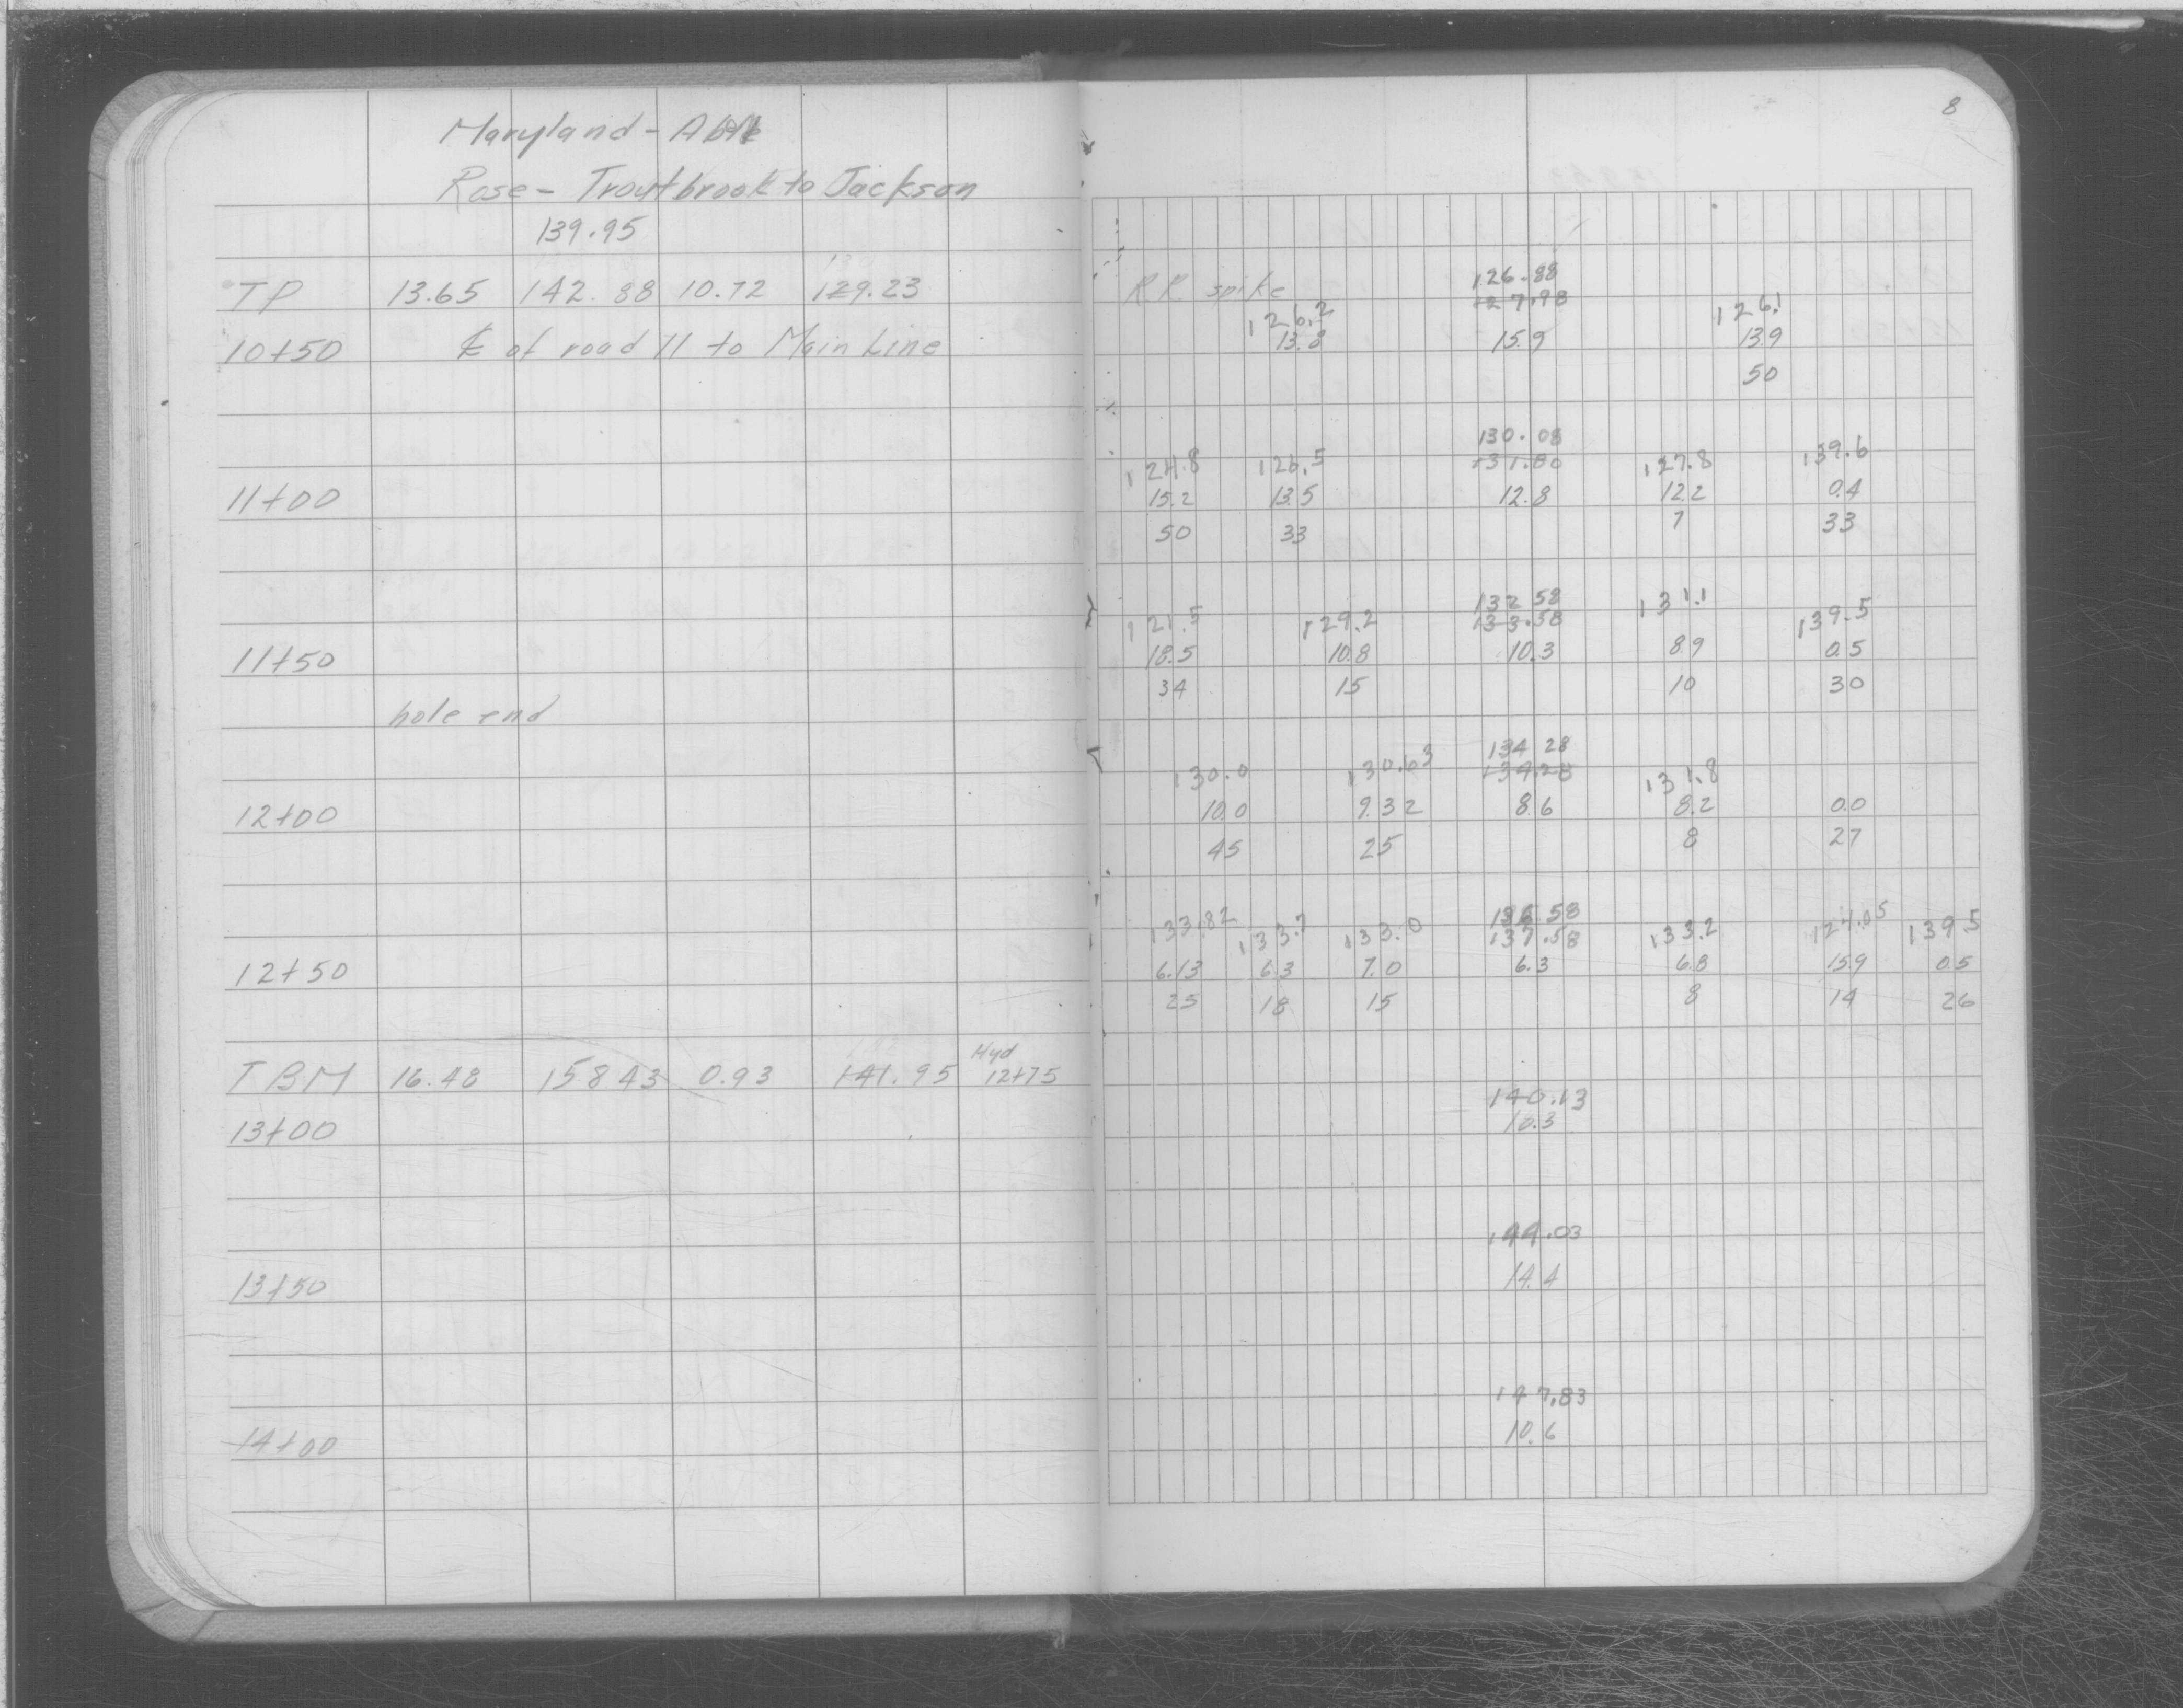 8
Maryland - Able
Rose - Troutbrook to Jackson
139.95
TP 13.65 142.88 10.72 129.23
RR spike 126.88
127.98
126.2 126.1
10+50 ℄ of road 11 to Main Line
13.8 15.9 13.9
50
130.08
124.8 126.5 131.80 127.8 139.6
11+00 15.2 13.5 12.8 12.2 0.4
50 33 7 33
132 58 131.1
121.5 129.2 133.58 139.5
11+50 18.5 10.8 10.3 8.9 0.5
34 15 10 30
hole end
134 28
130.0 130.63 134.28 131.8
12+00 10.0 9.32 8.6 8.2 0.0
45 25 8 27
136 58
133.82 133.7 133.0 137.58 133.2 124.05 139.5
12+50 6.13 6.3 7.0 6.3 6.8 15.9 0.5
25 18 15 8 14 26
Hyd
TBM 16.48 158 43 0.93 141.95 12+75
140.13
13+00 10.3
144.03
13+50 14.4
147.83
14+00 10.6